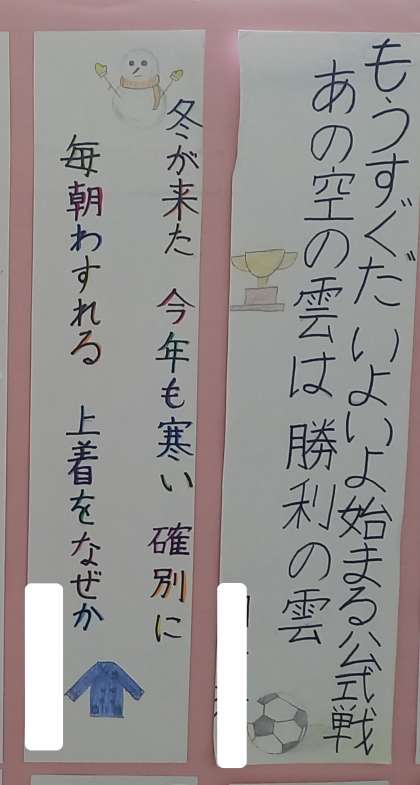 もうすぐだ いよいよ始まる公式戦
あの空の雲は 勝利の雲
冬が来た 今年も寒い 確別に
毎朝わすれる 上着をなぜか